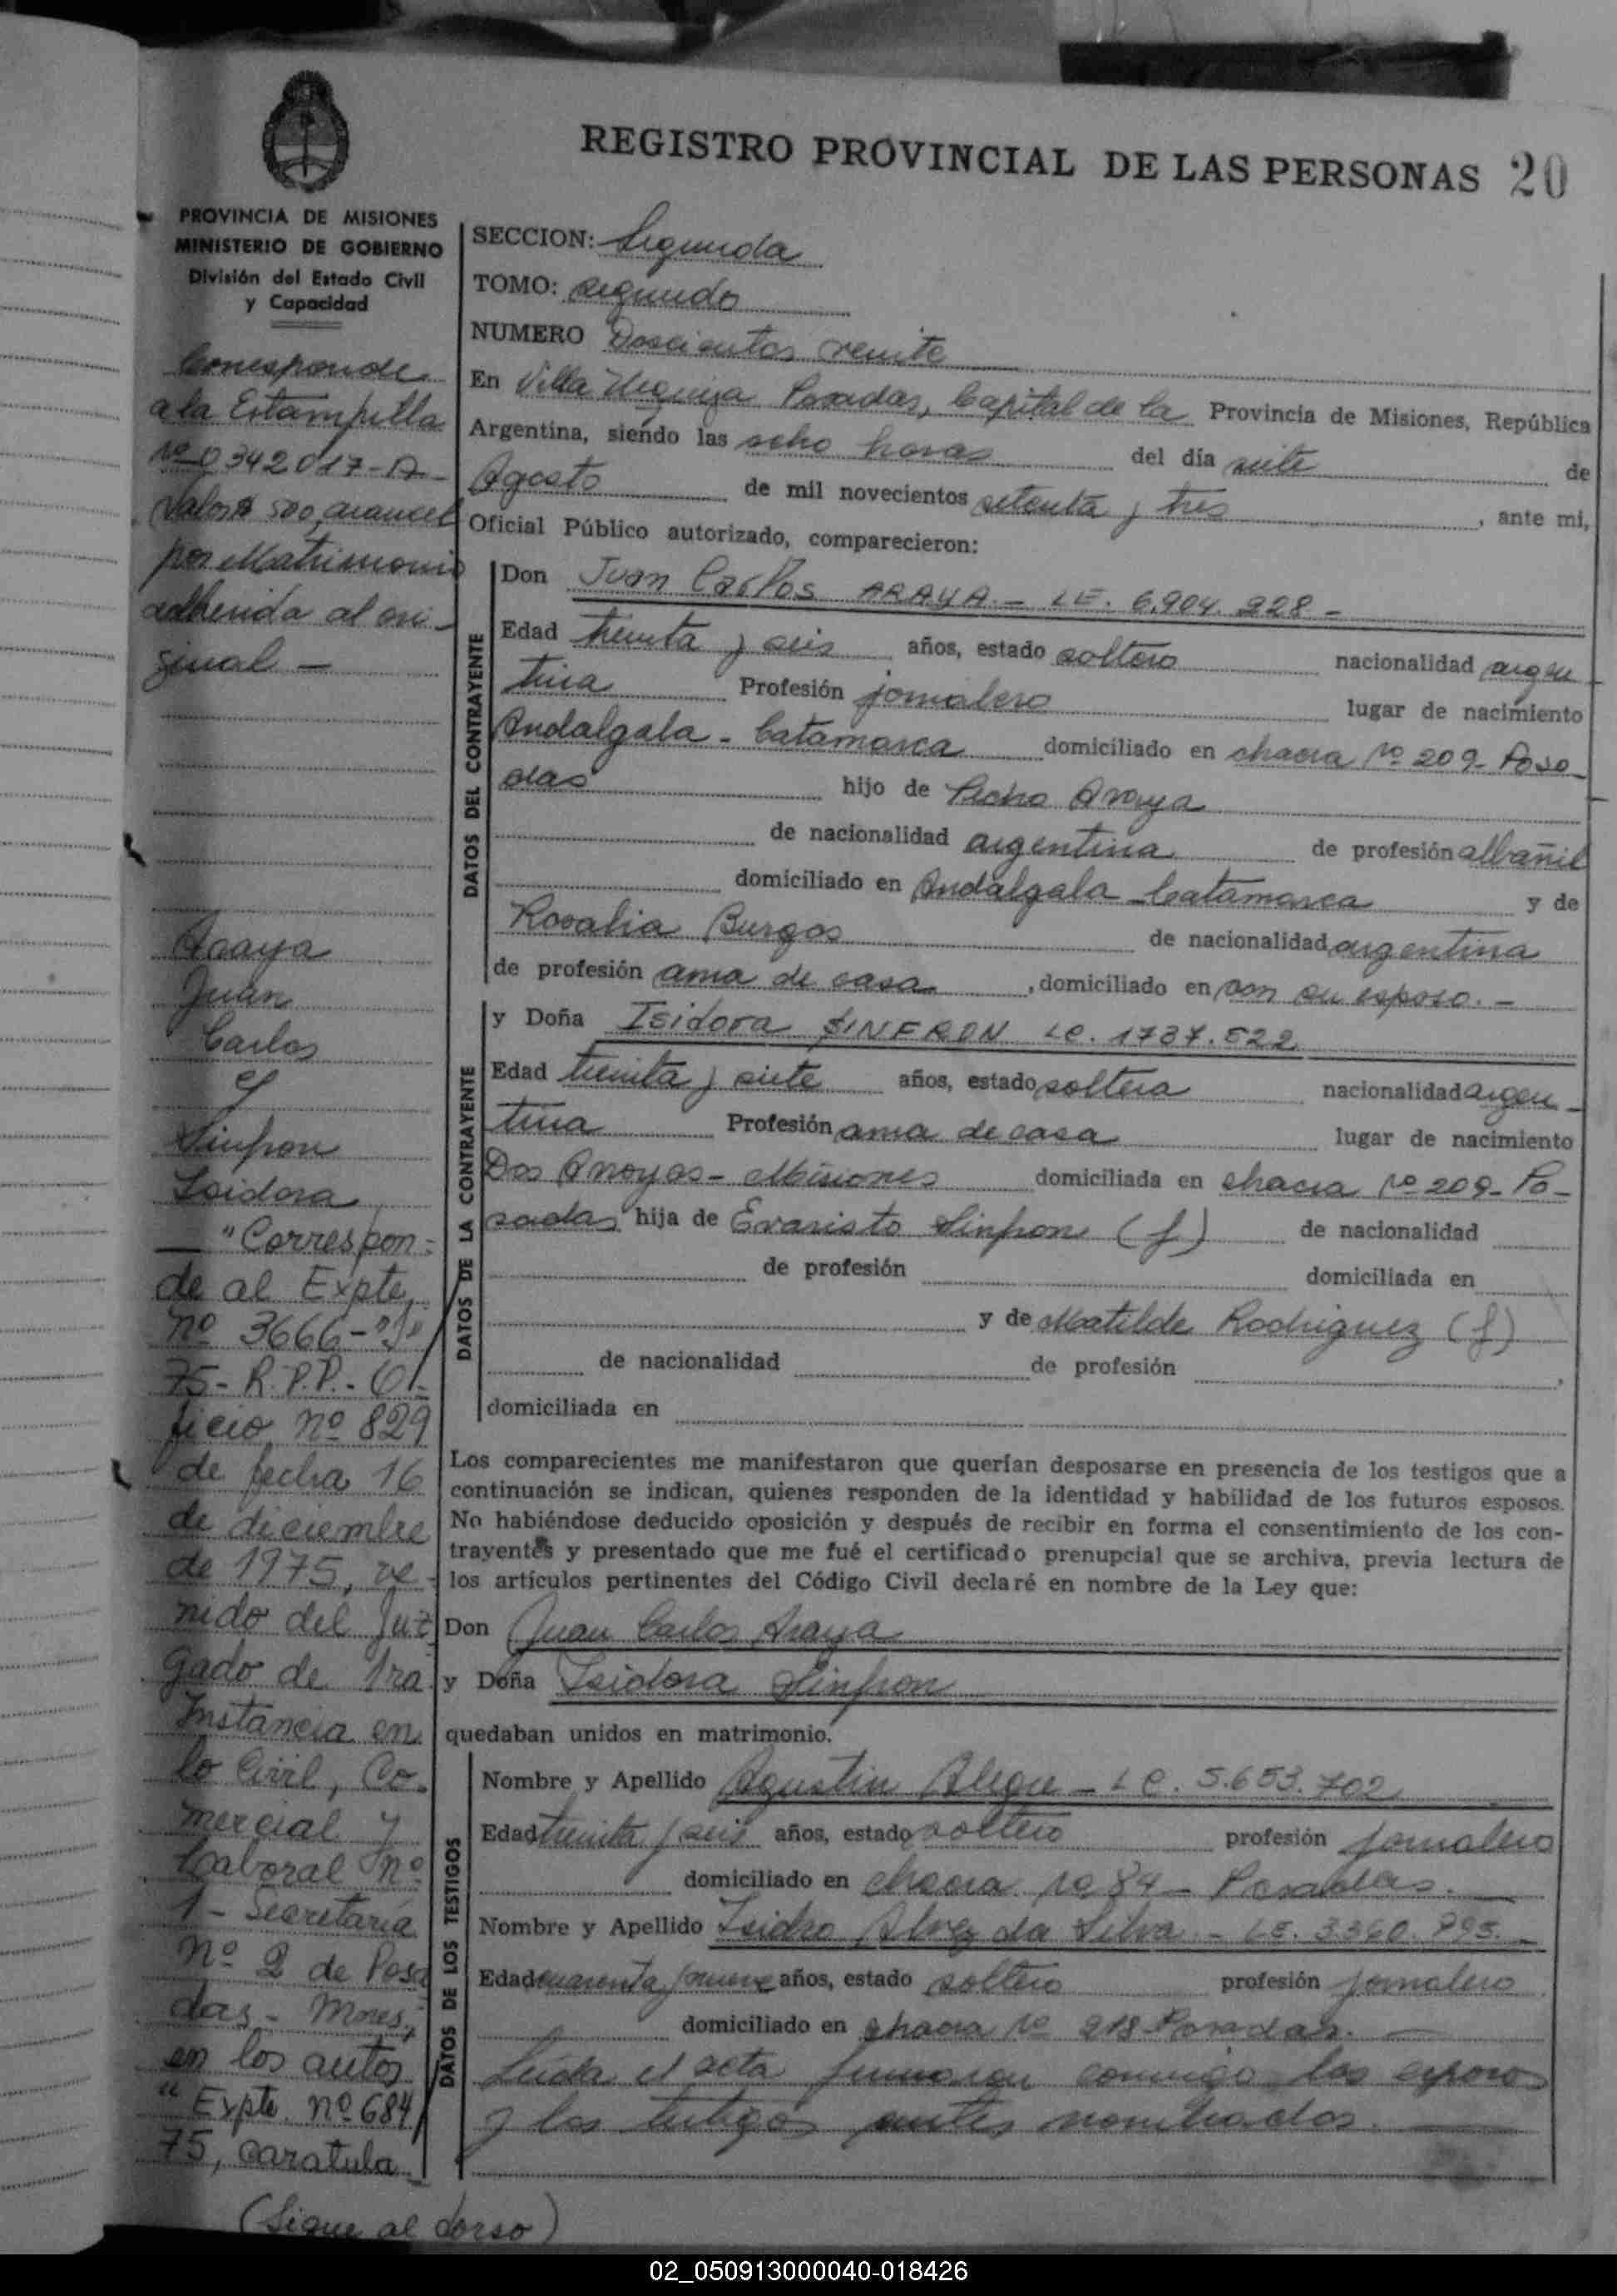 REGISTRO PROVINCIAL DE LAS PERSONAS 20
PROVINCIA DE MISIONES
MINISTERIO DE GOBIERNO
División del Estado Civil
y Capacidad
Corresponde
a la Estampilla
Nº 0342017-A-
Valor $ 500, arancel
por Matrimonio
adherida al ori-
ginal -
Araya
Juan
Carlos
y
Sinfron
Isidora
"Correspon-
de al Expte.
nº 3666-"J"
75- R.P.P.- Of-
ficio nº 829
de fecha 16
de diciembre
de 1975, ve-
nido del Juz
gado de 1ra
Instancia en
lo Civil, Co-
mercial y
Laboral nº
1 - Secretaría
nº 2 de Posa
das - Mnes,
en los autos
"Expte. nº 684/
75, caratula
(Sigue al dorso)
SECCION: Segunda
TOMO: segundo
NUMERO Doscientos veinte
En Villa Urquiza Posadas, Capital de la Provincia de Misiones, República
Argentina, siendo las ocho horas del día siete de
Agosto de mil novecientos setenta y tres, ante mi,
Oficial Público autorizado, comparecieron:
DATOS DEL CONTRAYENTE
Don Juan Carlos ARAYA.- LE. 6.904.228-
Edad treinta y seis años, estado soltero nacionalidad argen
tina Profesión jornalero lugar de nacimiento
Andalgala - Catamarca domiciliado en chacra Nº 209- Posa-
das hijo de Pedro Araya
de nacionalidad argentina de profesión albañil
domiciliado en Andalgala - Catamarca y de
Rosalia Burgos de nacionalidad argentina
de profesión ama de casa, domiciliado en con su esposo.-
DATOS DE LA CONTRAYENTE
y Doña Isidora SINFRON LC. 1737.522
Edad treinta y siete años, estado soltera nacionalidad argen-
tina Profesión ama de casa lugar de nacimiento
Dos Arroyos- Misiones domiciliada en chacra Nº 209- Po-
sadas hija de Evaristo Sinfron (f) de nacionalidad
de profesión domiciliada en
y de Matilde Rodriguez (f)
de nacionalidad de profesión
domiciliada en
Los comparecientes me manifestaron que querían desposarse en presencia de los testigos que a
continuación se indican, quienes responden de la identidad y habilidad de los futuros esposos.
No habiéndose deducido oposición y después de recibir en forma el consentimiento de los con-
trayentes y presentado que me fué el certificado prenupcial que se archiva, previa lectura de
los artículos pertinentes del Código Civil declaré en nombre de la Ley que:
Don Juan Carlos Araya
y Doña Isidora Sinfron
quedaban unidos en matrimonio.
DATOS DE LOS TESTIGOS
Nombre y Apellido Agustin Alegre - LE. 5.653.702
Edad treinta y seis años, estado soltero profesión jornalero
domiciliado en chacra Nº 84 - Posadas.
Nombre y Apellido Isidro Alvez da Silva - LE. 3360.895.-
Edad cuarenta y nueve años, estado soltero profesión jornalero
domiciliado en chacra Nº 218 Posadas.
Leida el acta firmaron conmigo los esposos
y los testigos antes nombrados.
02_050913000040-018426